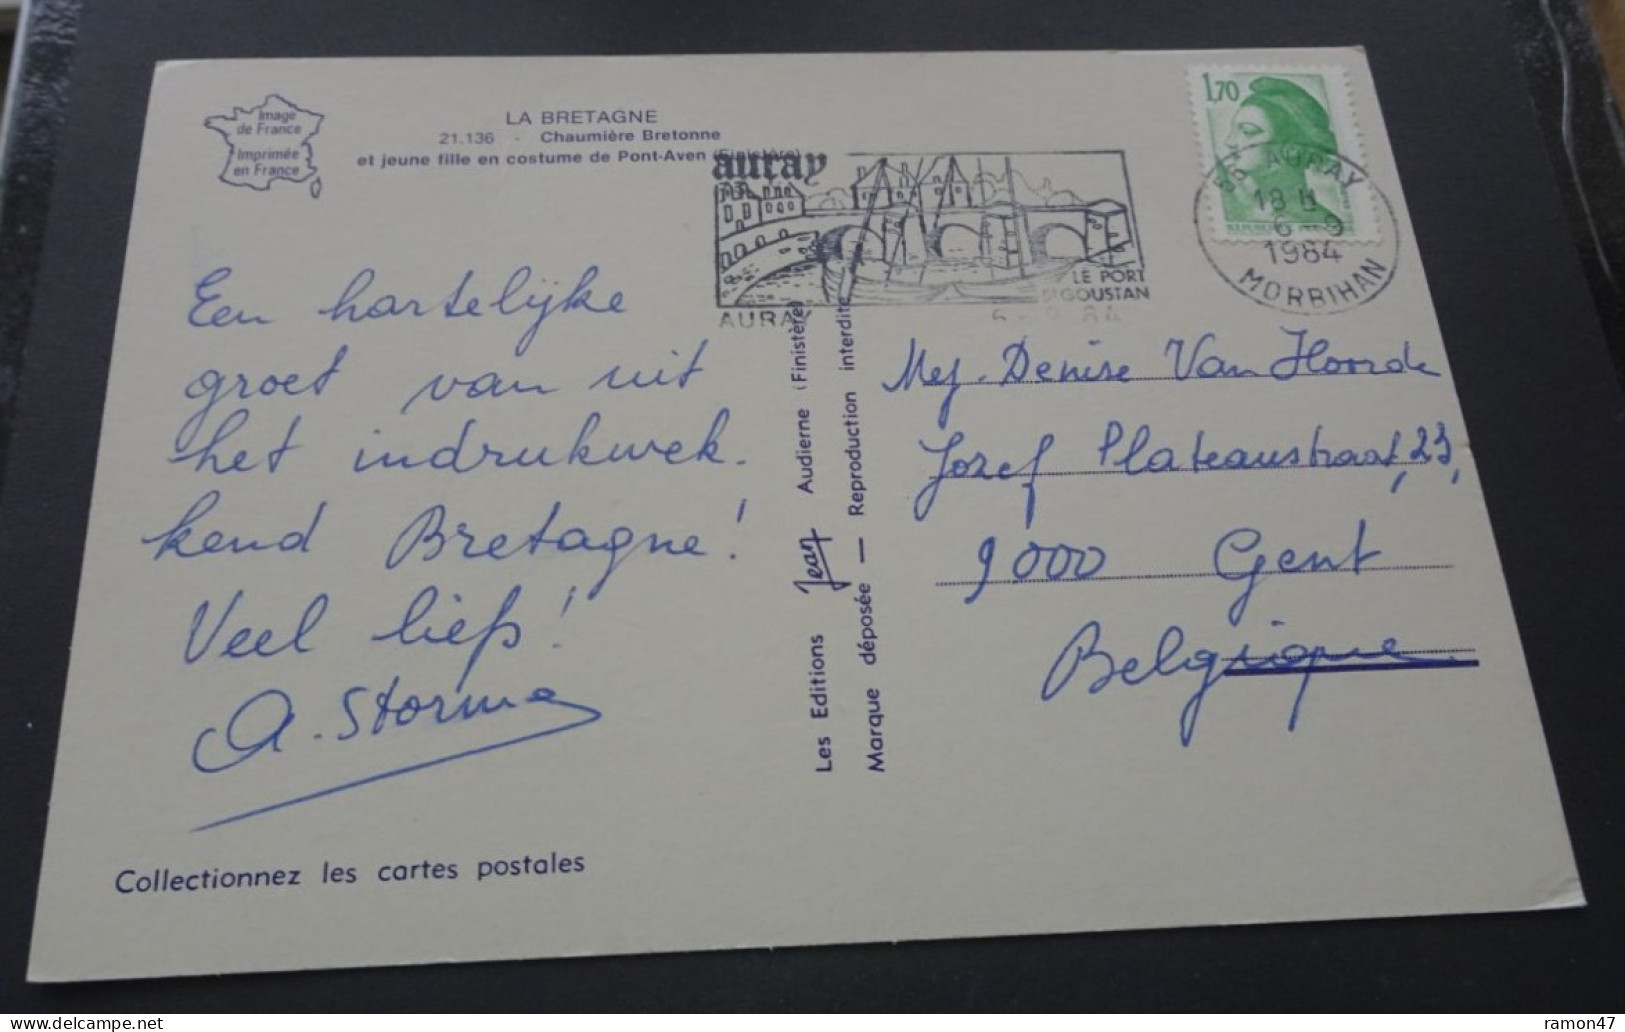 Image
de France
Imprimée
en France
LA BRETAGNE
21.136 - Chaumière Bretonne
et jeune fille en costume de Pont-Aven (Finistère)
auray
LE PORT
St GOUSTAN
AURAY
6-9 84
1,70
56 AURAY
18 H
6 - 9
1984
MORBIHAN
Een hartelijke
groet van uit
het indrukwek-
kend Bretagne!
Veel liefs!
A. Storme
Collectionnez les cartes postales
Les Editions Jean Audierne (Finistère)
Marque déposée — Reproduction interdite
Mej. Denise Van Hoorde
Jozef Plateaustraat, 23,
9000 Gent
Belgique
ramon47